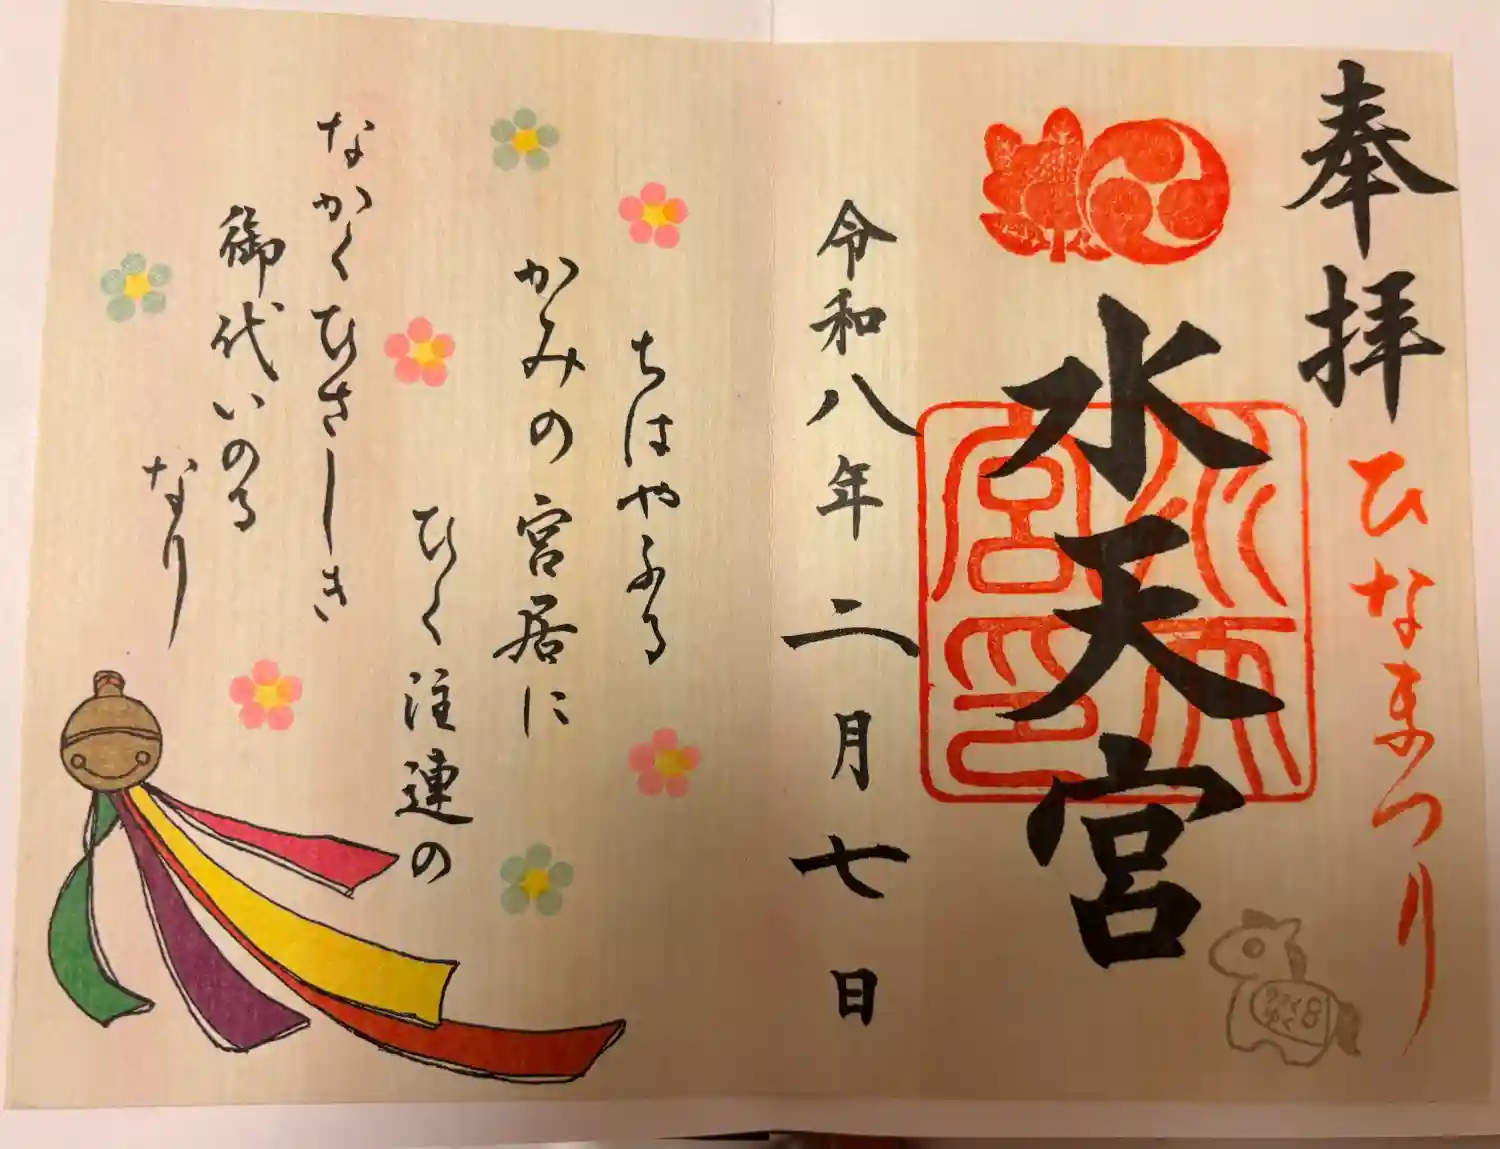 奉拝
ひなまつり
水天宮
水天宮印
令和八年二月七日
ちはやふる
かみの宮居に
ひく注連の
なかくひさしき
御代いのる
なり
8